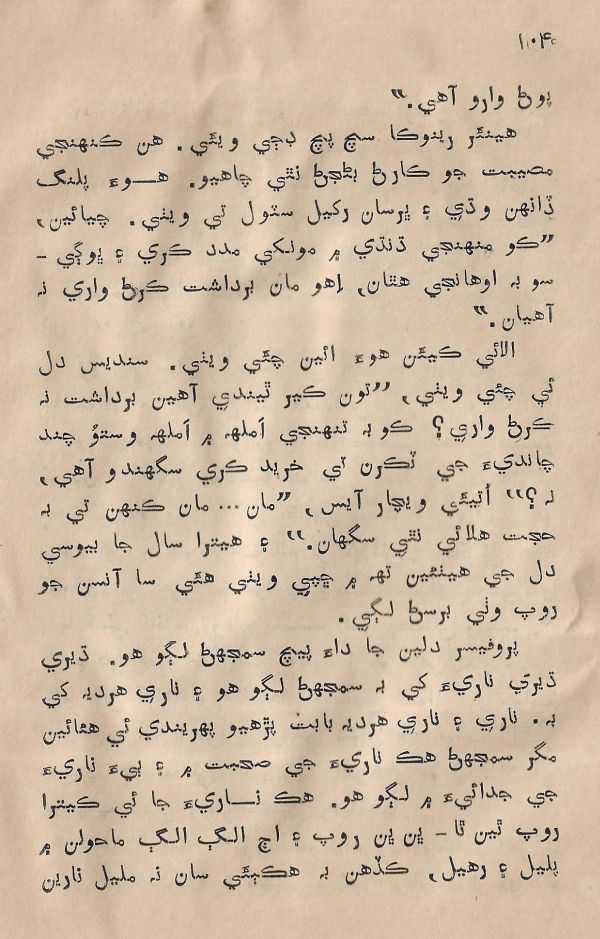 ۱۰۴
پوڻ وارو آهي.”
هينئر رينوکا سچ پچ ڊڄي ويئي. هن ڪنهنجي
مصيبت جو ڪارڻ بڻجڻ نٿي چاهيو. هوءَ پلنگ
ڏانهن وڌي ۽ ڀرسان رکيل سٽول تي ويٺي. چيائين,
”ڪو منهنجي ڌنڌي ۾ مونکي مدد ڪري ۽ ڀوڳي -
سو به اوهانجي هٿان, اِهو مان برداشت ڪرڻ واري نه
آهيان.”
الائي ڪيئن هوءَ ائين چئي ويٺي. سنديس دل
ئي چئي ويٺي, ”تون ڪير ٿيندي آهين برداشت نه
ڪرڻ واري؟ ڪو به تنهنجي اَملهه ۾ اَملهه وستوُ چند
چانديءَ جي ٽڪرن تي خريد ڪري سگهندو آهي,
نه؟” اُتيئي ويچار آيس, ”مان... مان ڪنهن تي به
حجت هلائي نٿي سگهان.” ۽ هيترا سال جا بيوسي
دل جي هيٺئين تهه ۾ ڇپي ويٺي هئي سا آنسن جو
روپ وٺي برسڻ لڳي.
پروفيسر دلين جا داءَ پيچ سمجهڻ لڳو هو. ڌيري
ڌيري ناريءَ کي به سمجهڻ لڳو هو ۽ ناري هرديه کي
به. ناري ۽ ناري هرديه بابت پڙهيو پهريندي ئي هئائين
مگر سمجهڻ هڪ ناريءَ جي صحبت ۾ ۽ ٻيءَ ناريءَ
جي جدائيءَ ۾ لڳو هو. هڪ ناريءَ جا ئي ڪيترا
روپ ٿين ٿا - ڀن ڀن روپ ۽ اڄ الڳ الڳ ماحولن ۾
پليل ۽ رهيل, ڪڏهن به هڪٻئي سان نه مليل نارين